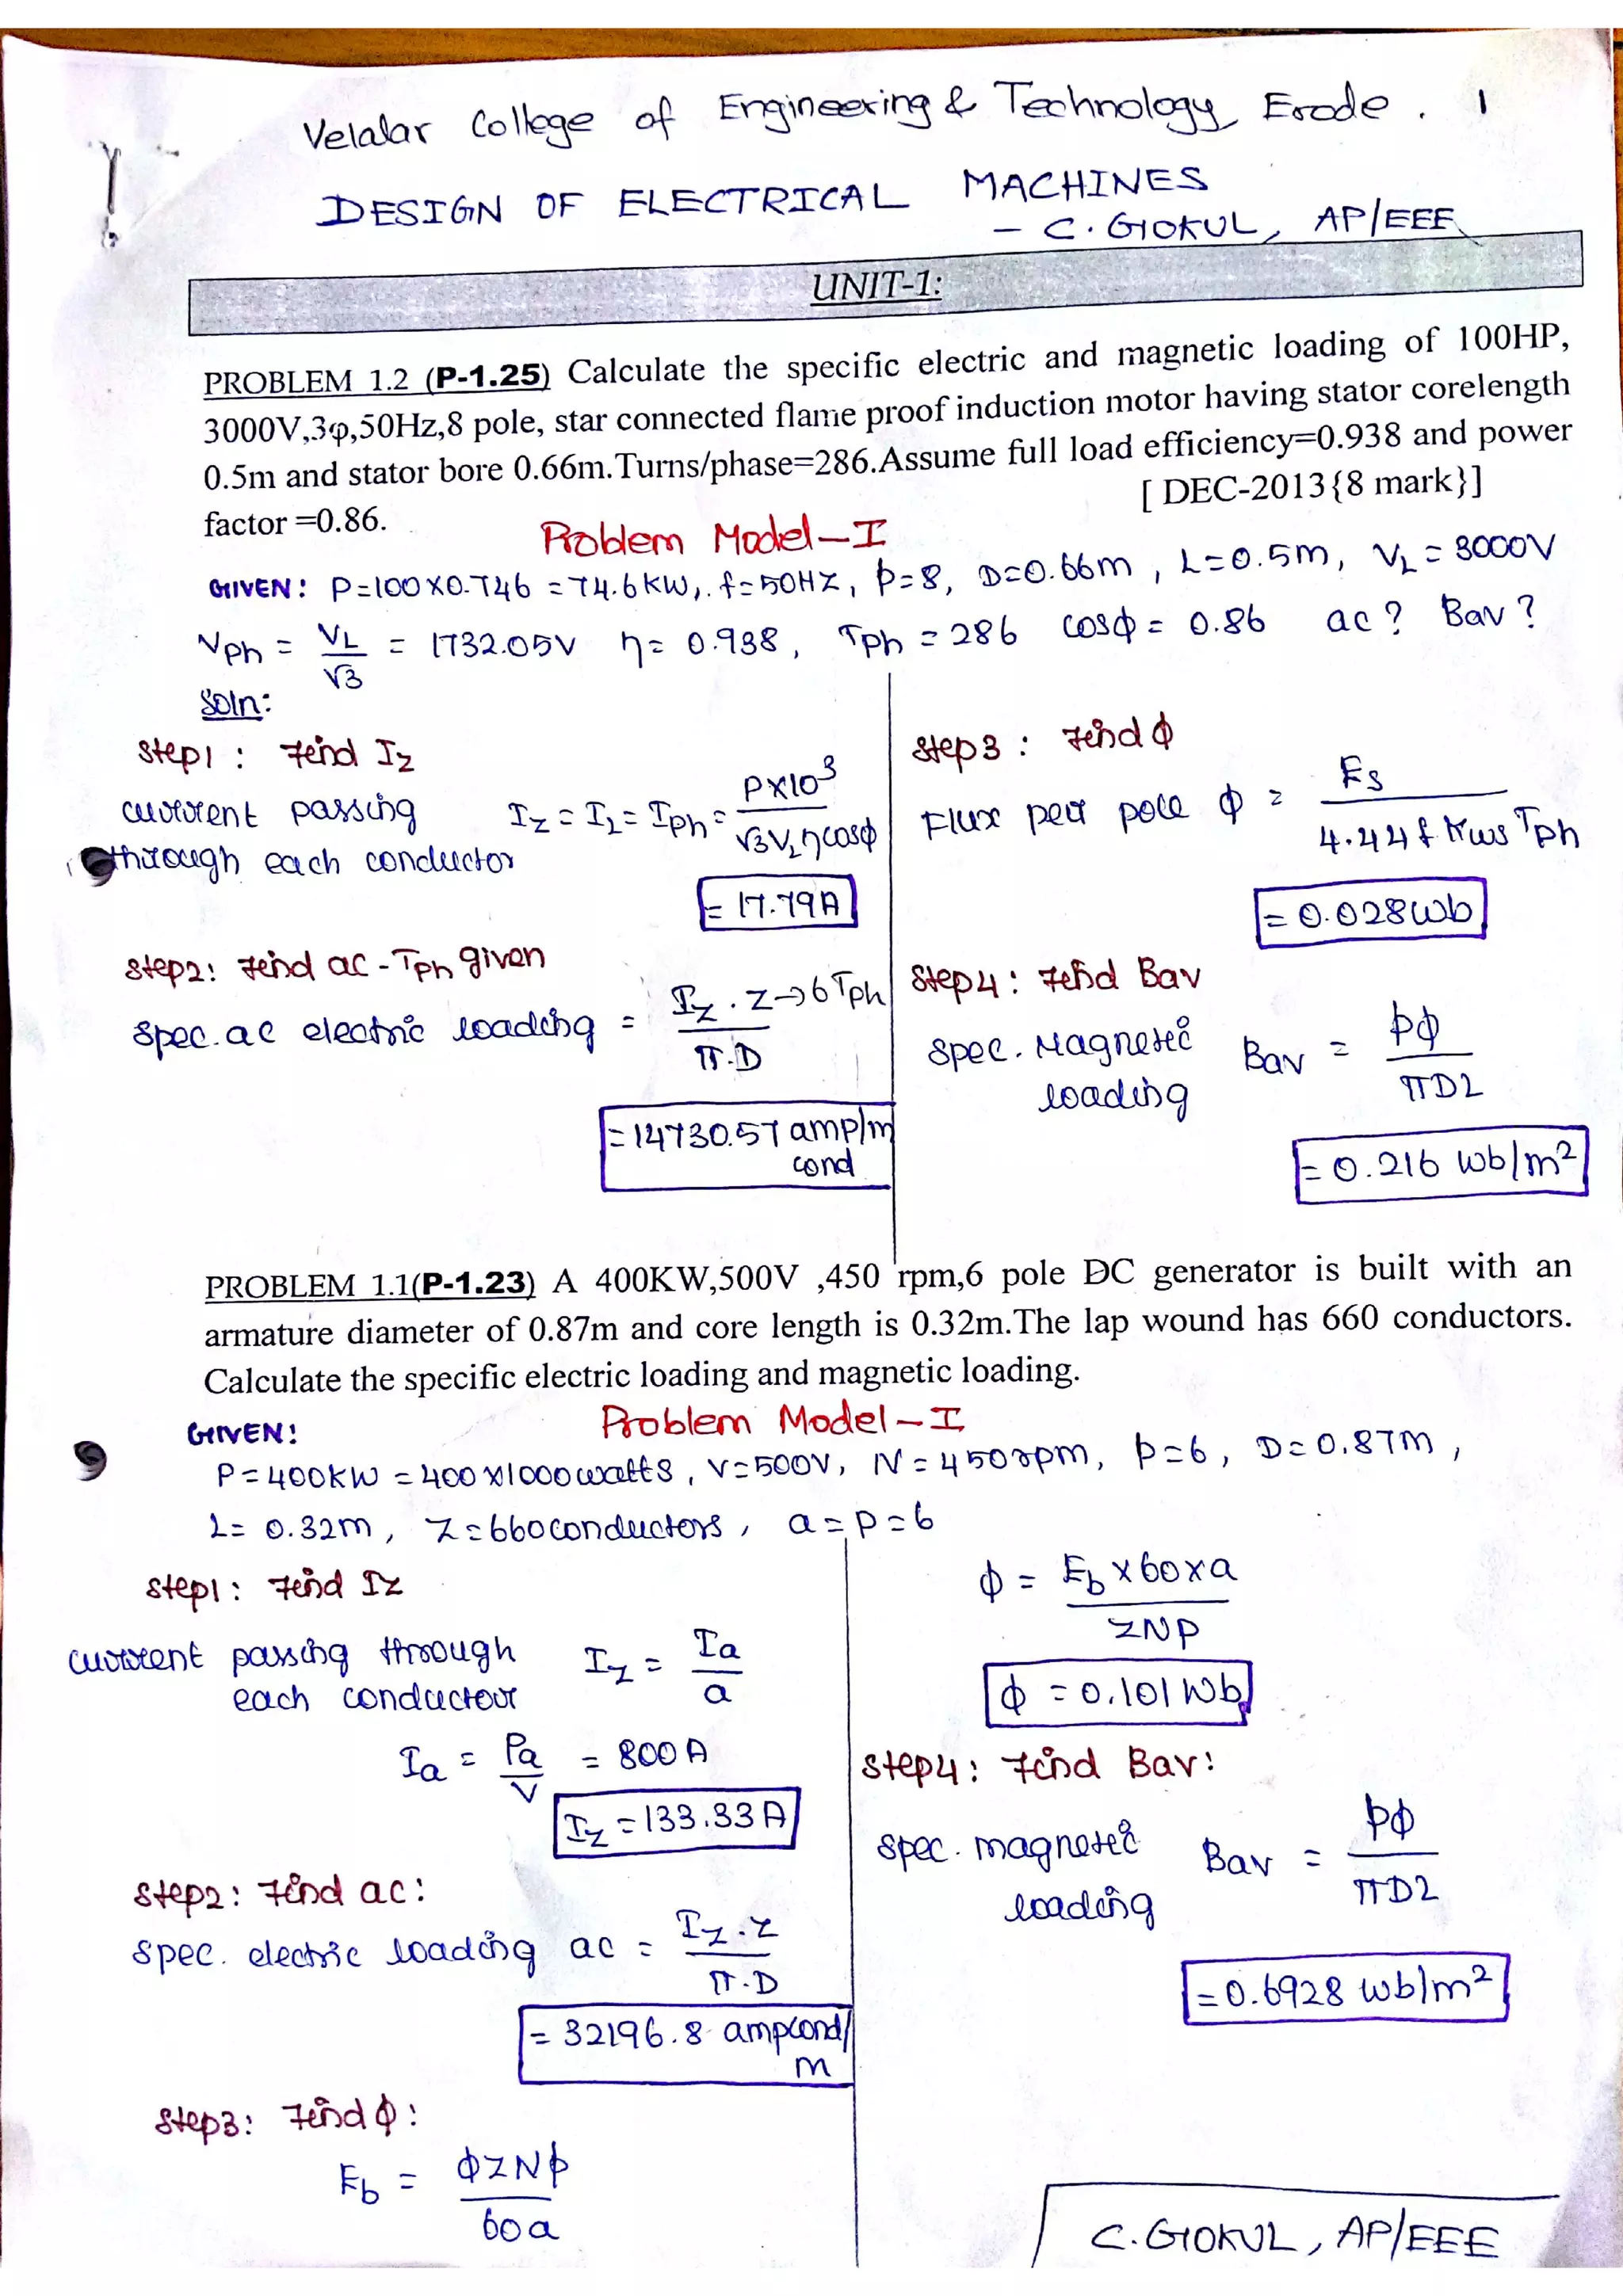 Velalar College of Engineering & Technology, Erode. 1
DESIGN OF ELECTRICAL MACHINES
- C. GOKUL, AP/EEE
UNIT-1:
PROBLEM 1.2 (P-1.25) Calculate the specific electric and magnetic loading of 100HP,
3000V,3φ,50Hz,8 pole, star connected flame proof induction motor having stator corelength
0.5m and stator bore 0.66m.Turns/phase=286.Assume full load efficiency=0.938 and power
factor =0.86. [ DEC-2013{8 mark}]
Problem Model-I
GIVEN: P=100X0.746 =74.6KW, f=50HZ, p=8, D=0.66m, L=0.5m, VL = 3000V
Vph = VL/√3 = 1732.05V η= 0.938, Tph = 286 cosϕ= 0.86 ac? Bav?
Soln:
Step1: Find Iz
current passing through each conductor
Iz = IL = Iph = PX10³/√3VLηcosϕ
= 17.79A
Step2: Find ac - Tph given
Spec. ac electric loading = Iz . Z→6Tph / π.D
= 14730.57 amp/m
cond
Step3: Find ϕ
Flux per pole ϕ = Es / 4.44 f Kws Tph
= 0.028wb
Step4: Find Bav
Spec. Magnetic loading Bav = pϕ / πDL
= 0.216 wb/m²
PROBLEM 1.1(P-1.23) A 400KW,500V ,450 rpm,6 pole DC generator is built with an
armature diameter of 0.87m and core length is 0.32m.The lap wound has 660 conductors.
Calculate the specific electric loading and magnetic loading.
Problem Model-I
GIVEN:
P=400KW =400X1000watts, V=500V, N=450rpm, p=6, D=0.87m,
L= 0.32m, Z=660conductors, a=p=6
Step1: Find Iz
current passing through each conductor Iz = Ia/a
Ia = Pa/V = 800A
Iz = 133.33A
Step2: Find ac:
Spec. electric loading ac = Iz.Z / π.D
= 32196.8 ampcond/
m
Step3: Find ϕ:
Eb = ϕZNp / 60a
ϕ = Eb x 60 x a / ZNP
ϕ = 0.101 Wb
Step4: Find Bav:
Spec. magnetic loading Bav = pϕ / πDL
= 0.6928 wb/m²
C. GOKUL, AP/EEE